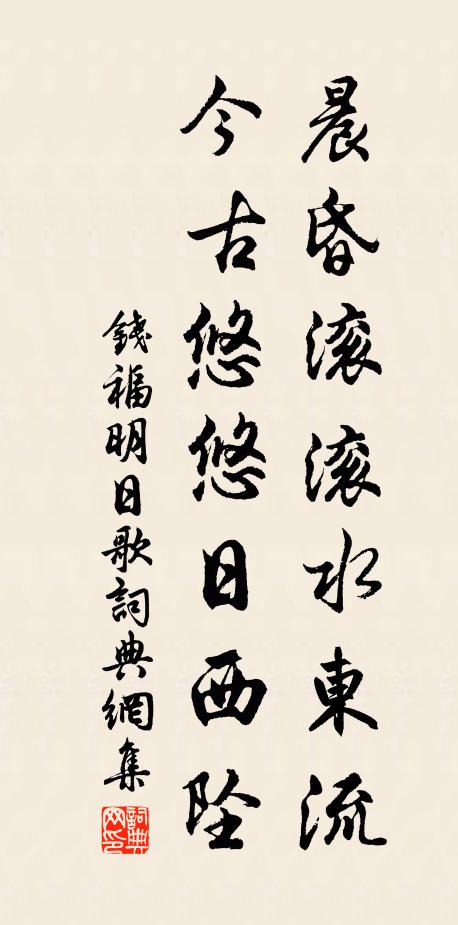 晨昏滚滚水東流
今古悠悠日西坠
錢福明日歌詞典網集
詞典网印